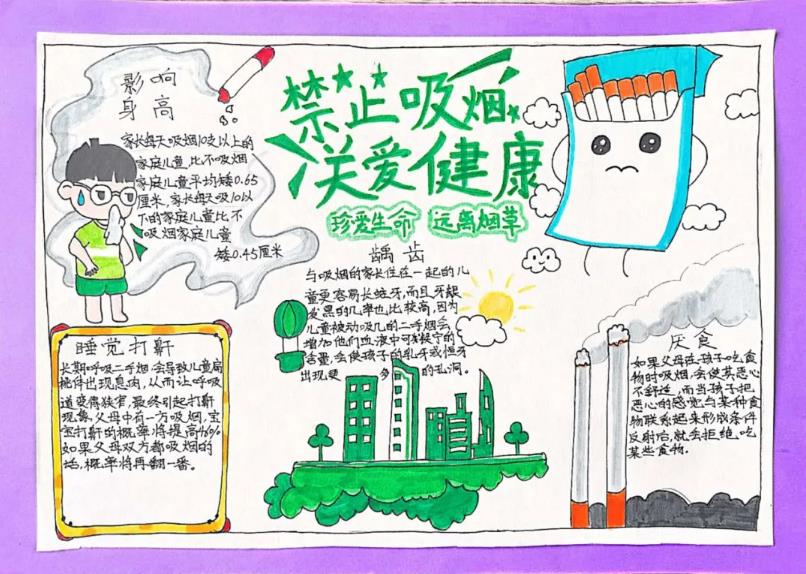 禁止吸烟
关爱健康
珍爱生命 远离烟草
影响
身高
家长每天吸烟10支以上的
家庭儿童,比不吸烟
家庭儿童平均矮0.65
厘米,家长每天吸10以
下的家庭儿童比不
吸烟家庭儿童
矮0.45厘米
龋齿
与吸烟的家长住在一起的儿
童更容易长蛀牙,而且牙龈
发黑的几率也比较高,因为
儿童被动吸入的二手烟会
增加他们血液中可替宁的
含量,会使孩子的乳牙或恒牙
出现更多的孔洞。
睡觉打鼾
长期呼吸二手烟,会导致儿童扁
桃体出现息肉,从而让呼吸
道变得狭窄,最终引起打鼾
现象。父母中有一方吸烟,宝
宝打鼾的概率将提高46%
如果父母双方都吸烟的
话,概率将再翻一番。
厌食
如果父母在孩子吃食
物时吸烟,会使其恶心
不舒适,而当孩子把
恶心的感觉与某种食
物联系起来形成条件
反射后,就会拒绝吃
某些食物。